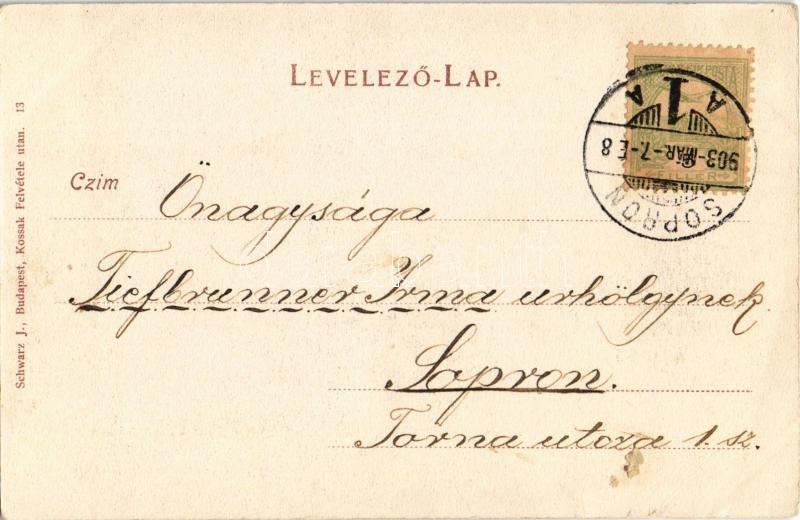 LEVELEZŐ-LAP.
SOPRON
903 MÁR -7.-E 8
A 1 A
FILLER
Czim Önagysága
Tiefbrunner Irma urhölgynek
Sopron.
Torna utcza 1. sz.
Schwarz J., Budapest, Kossak Felvétele utan. 13